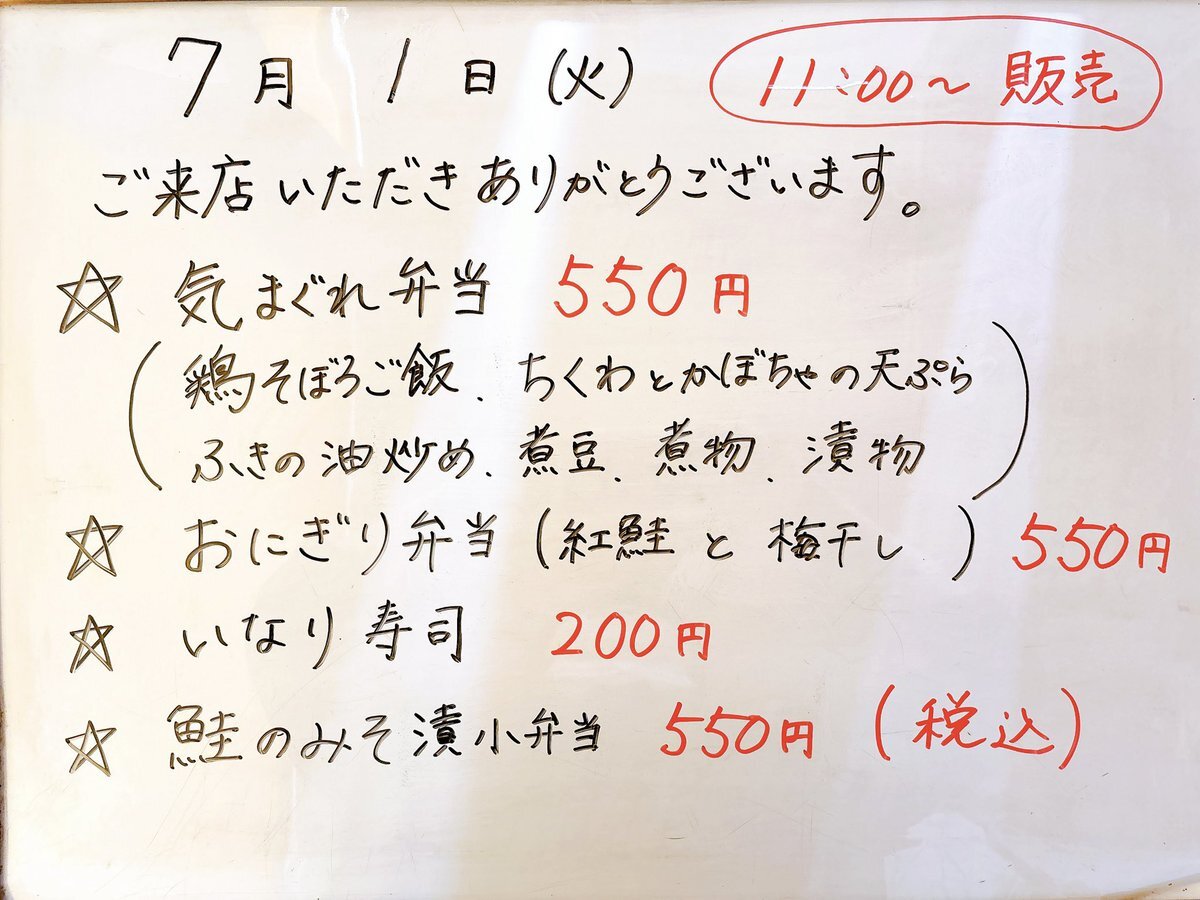 7月1日(火) 11:00~販売
ご来店いただきありがとうございます。
☆ 気まぐれ弁当 550円
(鶏そぼろご飯、ちくわとかぼちゃの天ぷら
ふきの油炒め、煮豆、煮物、漬物)
☆ おにぎり弁当(紅鮭と梅干し) 550円
☆ いなり寿司 200円
☆ 鮭のみそ漬小弁当 550円(税込)